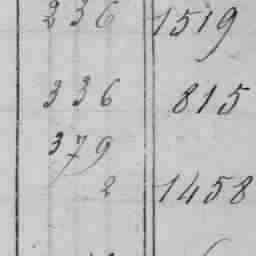 236 1519
336 815
379
2 1458